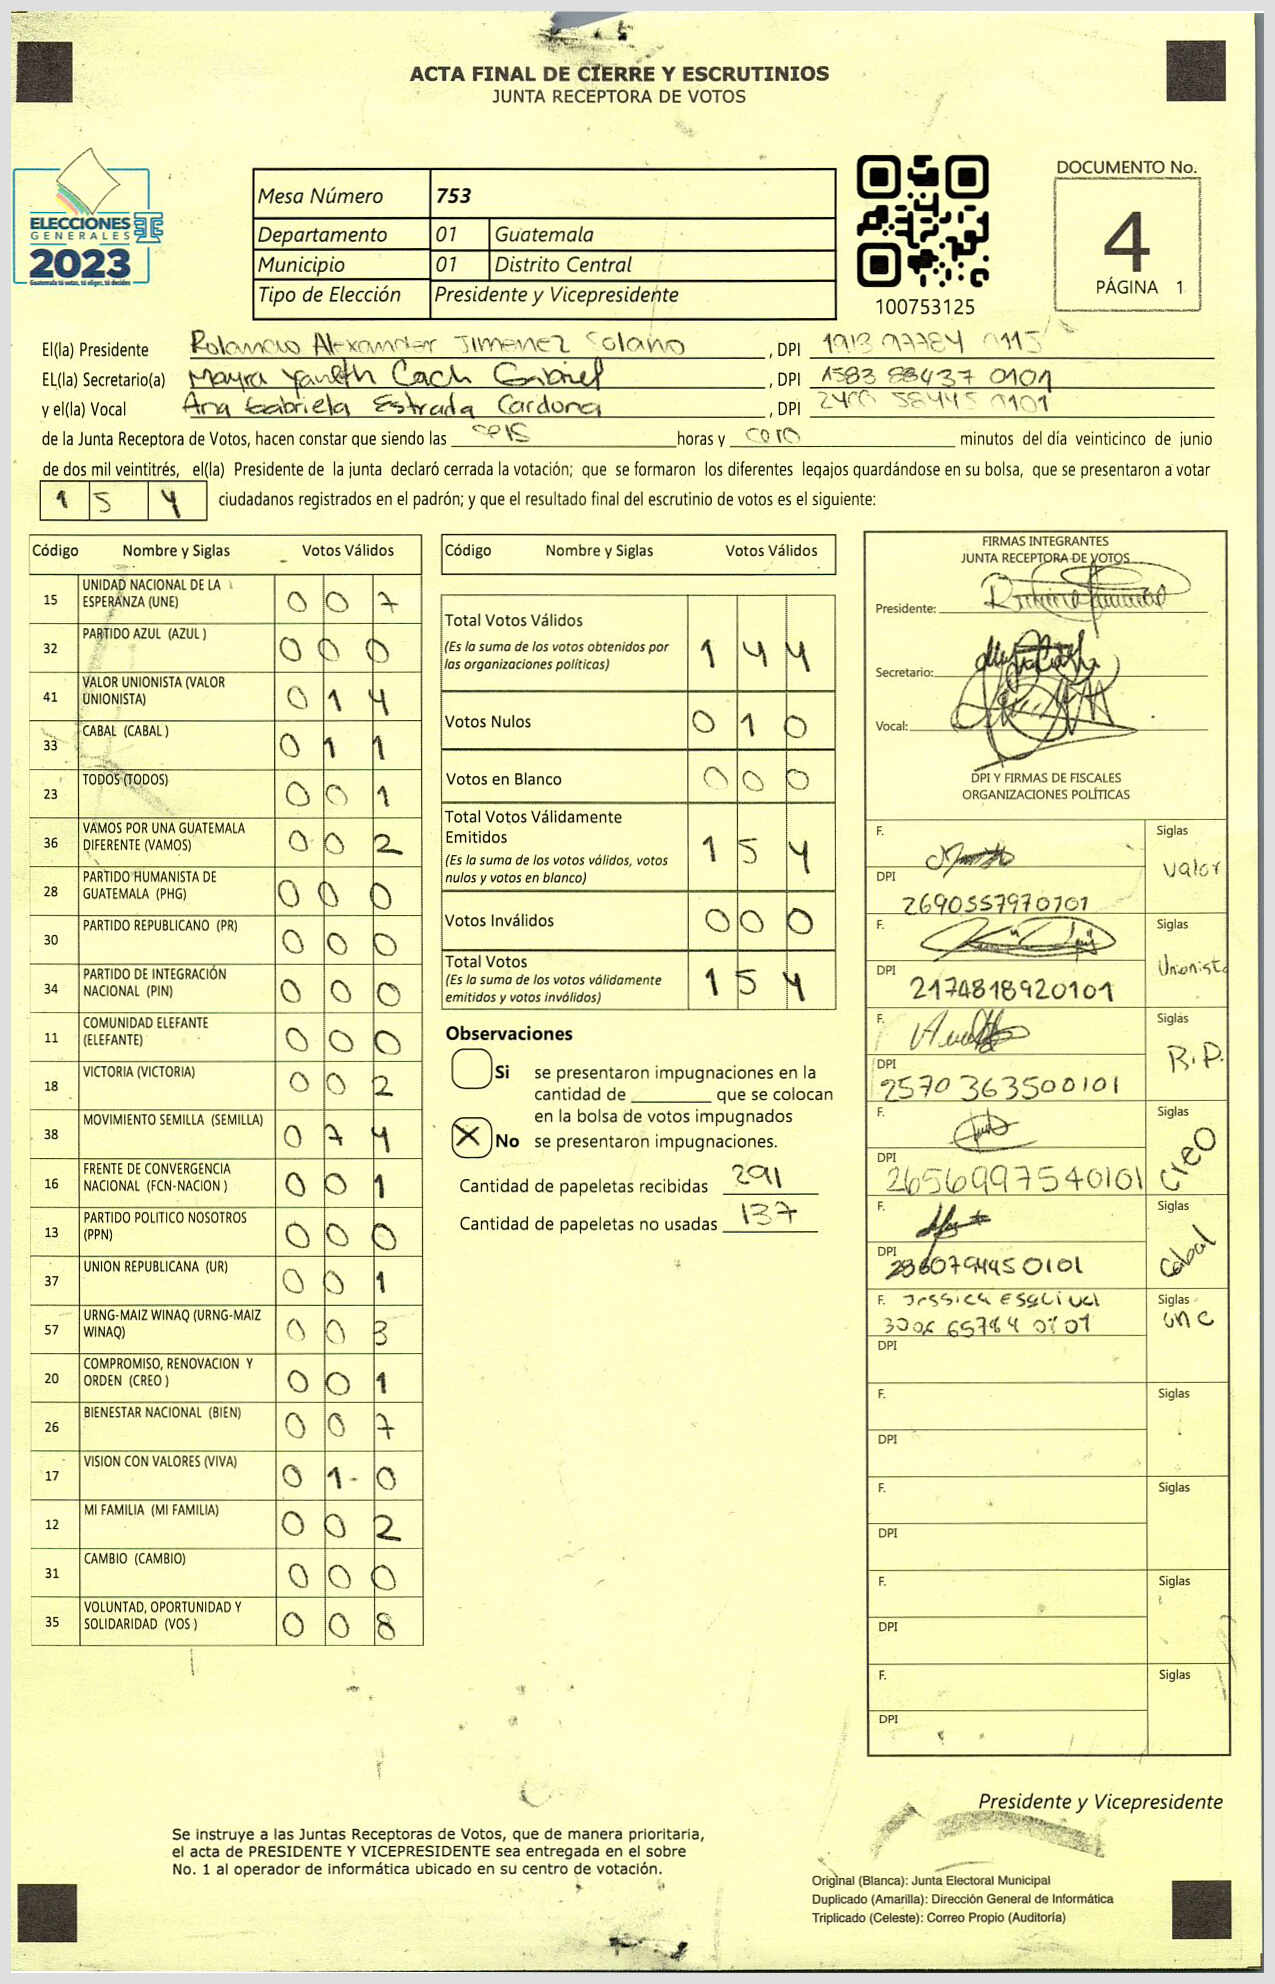 ACTA FINAL DE CIERRE Y ESCRUTINIOS
JUNTA RECEPTORA DE VOTOS
ELECCIONES
GENERALES
2023
Mesa Número 753
Departamento 01 Guatemala
Municipio 01 Distrito Central
Tipo de Elección Presidente y Vicepresidente
100753125
DOCUMENTO No.
4
PÁGINA 1
El(la) Presidente Alexander Jimenez Solano , DPI
EL(la) Secretario(a) Mayra Yaneth Cach Gabriel , DPI 1583 88437 0101
y el(la) Vocal Ana Gabriela Estrada Cardona , DPI
de la Junta Receptora de Votos, hacen constar que siendo las seis horas y cero minutos del día veinticinco de junio
de dos mil veintitrés, el(la) Presidente de la junta declaró cerrada la votación; que se formaron los diferentes legajos quardándose en su bolsa, que se presentaron a votar
1 5 4 ciudadanos registrados en el padrón; y que el resultado final del escrutinio de votos es el siguiente:
Código Nombre y Siglas Votos Válidos
15 UNIDAD NACIONAL DE LA ESPERANZA (UNE) 0 0 7
32 PARTIDO AZUL (AZUL ) 0 0 0
41 VALOR UNIONISTA (VALOR UNIONISTA) 0 1 4
33 CABAL (CABAL ) 0 1 1
23 TODOS (TODOS) 0 0 1
36 VAMOS POR UNA GUATEMALA DIFERENTE (VAMOS) 0 0 2
28 PARTIDO HUMANISTA DE GUATEMALA (PHG) 0 0 0
30 PARTIDO REPUBLICANO (PR) 0 0 0
34 PARTIDO DE INTEGRACIÓN NACIONAL (PIN) 0 0 0
11 COMUNIDAD ELEFANTE (ELEFANTE) 0 0 0
18 VICTORIA (VICTORIA) 0 0 2
38 MOVIMIENTO SEMILLA (SEMILLA) 0 7 4
16 FRENTE DE CONVERGENCIA NACIONAL (FCN-NACION ) 0 0 1
13 PARTIDO POLITICO NOSOTROS (PPN) 0 0 0
37 UNION REPUBLICANA (UR) 0 0 1
57 URNG-MAIZ WINAQ (URNG-MAIZ WINAQ) 0 0 3
20 COMPROMISO, RENOVACION Y ORDEN (CREO ) 0 0 1
26 BIENESTAR NACIONAL (BIEN) 0 0 7
17 VISION CON VALORES (VIVA) 0 1 0
12 MI FAMILIA (MI FAMILIA) 0 0 2
31 CAMBIO (CAMBIO) 0 0 0
35 VOLUNTAD, OPORTUNIDAD Y SOLIDARIDAD (VOS ) 0 0 8
Código Nombre y Siglas Votos Válidos
Total Votos Válidos 1 4 4
(Es la suma de los votos obtenidos por
las organizaciones políticas)
Votos Nulos 0 1 0
Votos en Blanco 0 0 0
Total Votos Válidamente
Emitidos 1 5 4
(Es la suma de los votos válidos, votos
nulos y votos en blanco)
Votos Inválidos 0 0 0
Total Votos 1 5 4
(Es la suma de los votos válidamente
emitidos y votos inválidos)
Observaciones
Si se presentaron impugnaciones en la
cantidad de ________ que se colocan
en la bolsa de votos impugnados
X No se presentaron impugnaciones.
Cantidad de papeletas recibidas 291
Cantidad de papeletas no usadas 137
FIRMAS INTEGRANTES
JUNTA RECEPTORA DE VOTOS
Presidente:
Secretario:
Vocal:
DPI Y FIRMAS DE FISCALES
ORGANIZACIONES POLÍTICAS
F. Siglas valor
DPI 2690557970101
F. Siglas Unionista
DPI 2174818920101
F. Siglas R.P.
DPI 2570363500101
F. Siglas creo
DPI 2656997540101
F. Siglas cabal
DPI
F. Jessica Esquivel Siglas une
DPI
F. Siglas
DPI
F. Siglas
DPI
F. Siglas
DPI
F. Siglas
DPI
Presidente y Vicepresidente
Se instruye a las Juntas Receptoras de Votos, que de manera prioritaria,
el acta de PRESIDENTE Y VICEPRESIDENTE sea entregada en el sobre
No. 1 al operador de informática ubicado en su centro de votación.
Original (Blanca): Junta Electoral Municipal
Duplicado (Amarilla): Dirección General de Informática
Triplicado (Celeste): Correo Propio (Auditoría)